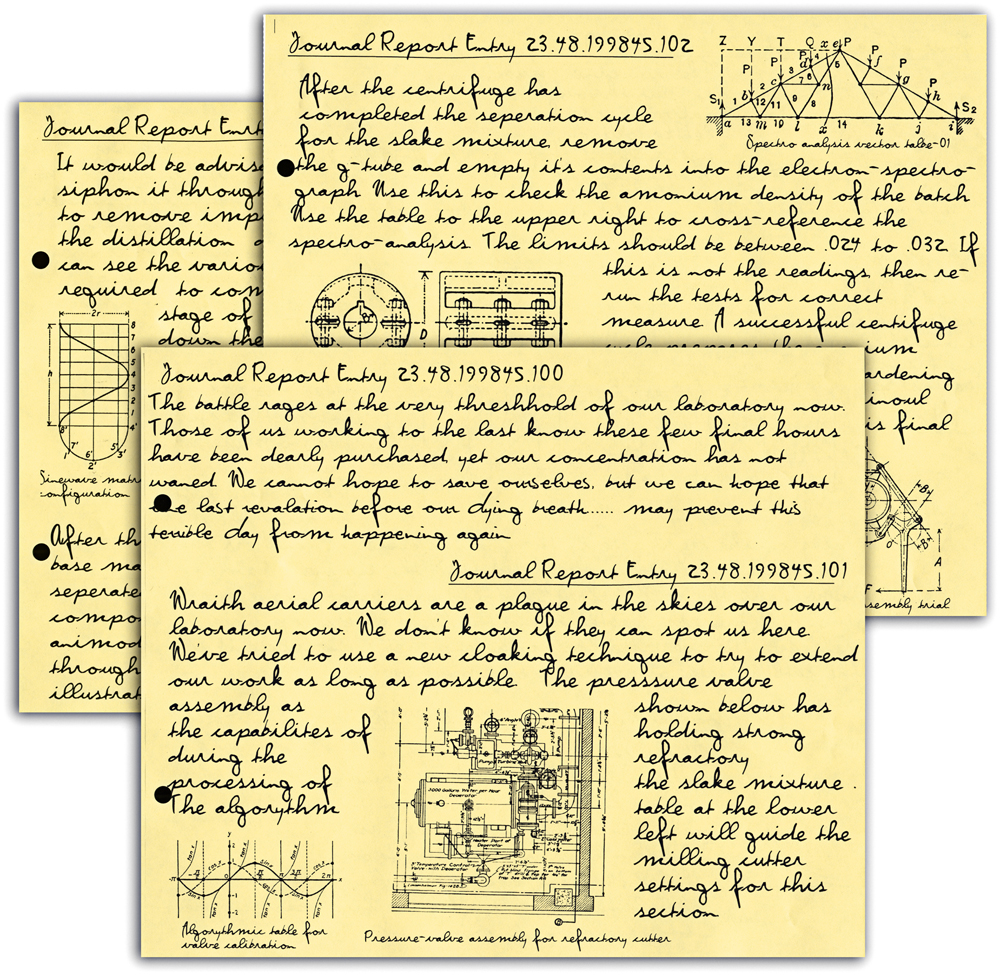 Journal Report Entry 23.48.199845.102
After the centrifuge has
completed the seperation cycle
for the slake mixture, remove
the g-tube and empty it's contents into the electron-spectro-
graph. Use this to check the amonium density of the batch
Use the table to the upper right to cross-reference the
spectro-analysis. The limits should be between .024 to .032. If
this is not the readings, then re-
run the tests for correct
measure. A successful centifuge
Z Y T Q x e P
P P P P P P
S1 S2
a b c d n f g h
m l x k j i
1 2 3 4 5 6 7 8 9 10 11 12 13 14
Spectro analysis vector talbe-01
D
ardening
inoul
is final
"B"
"B"
A
F
sembly trial
Journal Report Enrt
It would be advis
siphon it through
to remove imp
the distillation
can see the vario
required to com
stage of
down the
2r
h
8
7
6
5
4
3
2
1
8' 7' 6' 5' 4' 3' 2' 1'
Sinewave matr
configuration
After th
base ma
seperate
compo
animod
through
illustrat
Journal Report Entry 23.48.199845.100
The battle rages at the very threshhold of our laboratory now.
Those of us working to the last know these few final hours
have been dearly purchased, yet our concentration has not
waned. We cannot hope to save ourselves, but we can hope that
one last revalation before our dying breath..... may prevent this
terrible day from happening again
Journal Report Entry 23.48.199845.101
Wraith aerial carriers are a plague in the skies over our
laboratory now. We don't know if they can spot us here.
We've tried to use a new cloaking technique to try to extend
our work as long as possible. The presssure valve
assembly as shown below has
the capabilites of holding strong
during the refractory
processing of the slake mixture.
The algorythm table at the lower
left will guide the
milling cutter
settings for this
section
2000 Gallons Water per Hour
Deaerator
Heater Part of
Deaerator
Temperature Control
Valve with Deaerator
y
x
tan x
cos x
sin x
2π
Algorythmic table for
valve calibration
Pressure-valve assembly for refractory cutter